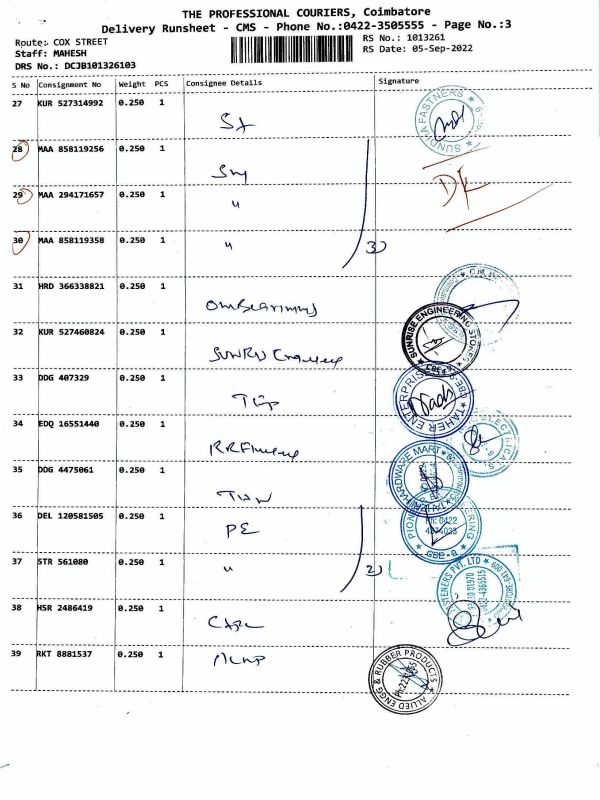 THE PROFESSIONAL COURIERS, Coimbatore
Delivery Runsheet - CMS - Phone No.:0422-3505555 - Page No.:3
Route: COX STREET
RS No.: 1013261
Staff: MAHESH
RS Date: 05-Sep-2022
DRS No.: DCJB101326103
S No Consignment No Weight PCS Consignee Details Signature
27 KUR 527314992 0.250 1
SUNDIRA FASTNERS
28 MAA 858119256 0.250 1
29 MAA 294171657 0.250 1
"
30 MAA 858119358 0.250 1
" 3)
31 HRD 366338821 0.250 1
32 KUR 527460824 0.250 1
SUNRISE ENGINEERING STORES
CBE
33 DDG 407329 0.250 1
TAHER ENTERPRISE
CBE
34 EDQ 16551440 0.250 1
ELECTRICALS
35 DDG 4475061 0.250 1
HARDWARE MART
36 DEL 120581505 0.250 1
PE
0422
CBE-8
37 STR 561080 0.250 1
" 2)
PVT. LTD
38 HSR 2486419 0.250 1
39 RKT 8881537 0.250 1
ALLIED ENGG & RUBBER PRODUCTS